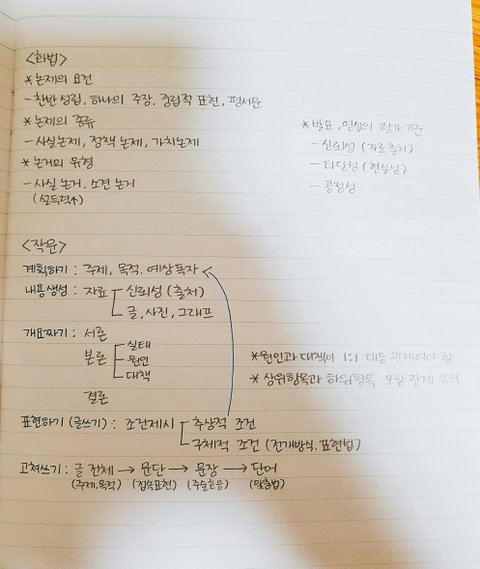 <화법>
*논제의 요건
- 찬반 성립, 하나의 주장, 중립적 표현, 평서문
*논제의 종류
- 사실논제, 정책 논제, 가치논제
*논거의 유형
- 사실 논거, 소견 논거
(설득력↑)
*발표, 연설의 평가 기준
- 신뢰성 (자료출처)
- 타당성 (현실성)
- 공정성
<작문>
계획하기 : 주제, 목적, 예상독자
내용생성 : 자료 신뢰성 (출처)
글, 사진, 그래프
개요짜기 : 서론
본론 실태
원인
대책
결론
*원인과 대책이 1:1 대응 관계여야 함
*상위항목과 하위항목 포함 관계 유의
표현하기 (글쓰기) : 조건제시 추상적 조건
구체적 조건 (전개방식, 표현법)
고쳐쓰기 : 글 전체 → 문단 → 문장 → 단어
(주제,목적) (접속표현) (주술호응) (맞춤법)